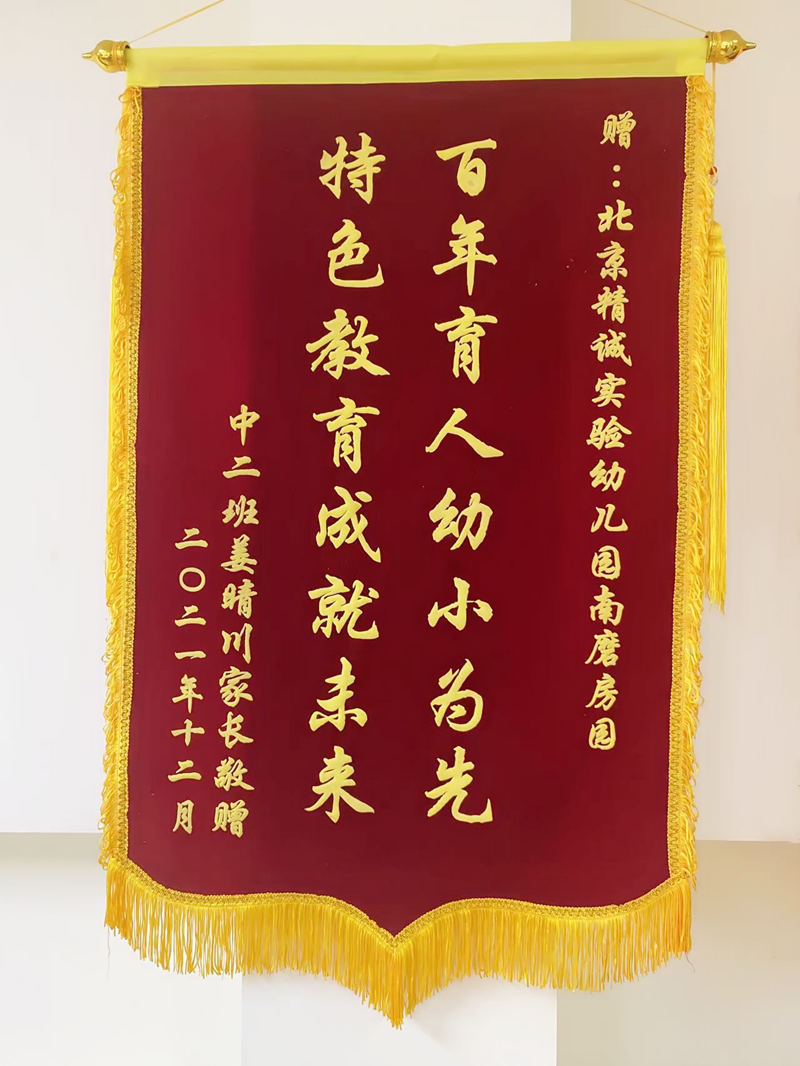 赠：北京精诚实验幼儿园南磨房园
百年育人幼小为先
特色教育成就未来
中二班姜晴川家长敬赠
二〇二一年十二月